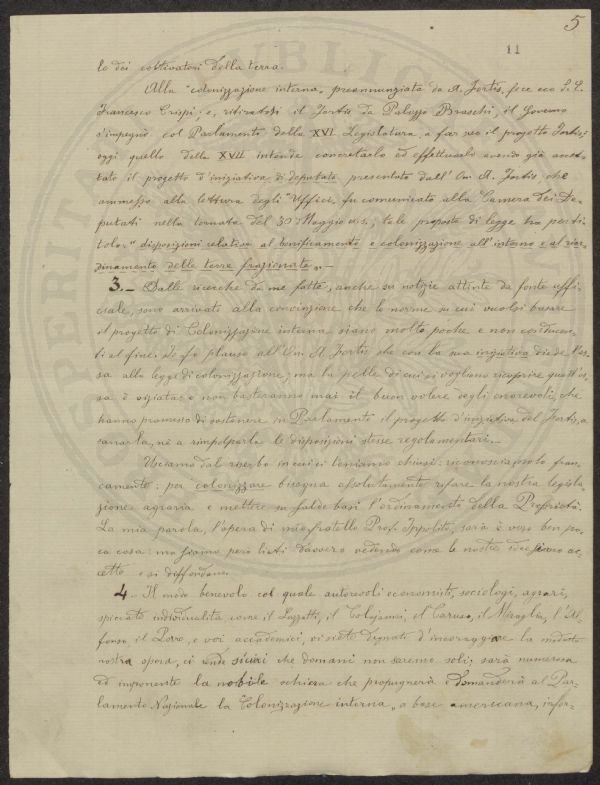 5
11
le dei coltivatori della terra.
Alla "colonizzazione interna" preannunziata da A. Fortis, fece eco S. E.
Francesco Crispi; e, ritiratosi il Fortis da Palazzo Braschi, il Governo
s'impegnò col Parlamento della XVI Legislatura, a far suo il progetto Fortis;
oggi quello della XVII intende concretarlo ed effettuarlo avendo già accet-
tato il progetto d'iniziativa di deputato presentato dall'On. A. Fortis che
ammesso alla lettura degli "Uffici" fu comunicato alla Camera dei De-
putati nella tornata del 30 Maggio u.s.; tale proposta di legge ha per ti-
tolo: "disposizioni relative al bonificamento e colonizzazione all'interno e al rior-
dinamento delle terre frazionate".—
3.— Dalle ricerche da me fatte, anche su notizie attinte da fonte uffi-
ciale, sono arrivato alla convinzione che le norme su cui vuolsi basare
il progetto di Colonizzazione interna siano molto poche e non conducen-
ti al fine: Io fo plauso all'On. A. Fortis che con la sua iniziativa diede l'os-
sa alla legge di colonizzazione; ma la pelle di cui si vogliono ricoprire quest'os-
sa è viziata; e non basteranno mai il buon volere degli onorevoli, che
hanno promesso di sostenere in Parlamento il progetto d'iniziativa del Fortis, a
sanarla, nè a rimpolparla le disposizioni stesse regolamentari.—
Usciamo dal riserbo in cui ci teniamo chiusi: riconosciamolo fran-
camente: per colonizzare bisogna assolutamente rifare la nostra legisla-
zione agraria e mettere su salde basi l'ordinamento della Proprietà.
La mia parola, l'opera di mio fratello Prof. Ippolito, sarà è vero ben po-
ca cosa: ma siamo però lieti davvero vedendo come le nostre idee siano ac-
cette e si diffondano.
4.— Il modo benevolo col quale autorevoli economisti, sociologi, agrari,
spiccate individualità, come il Luzzatti, il Colajanni, il Caruso, il Miraglia, l'Al-
fonso, il Poro, e voi accademici, vi siete degnati d'incoraggiare la modesta
nostra opera, ci rende sicuri che domani non saremo soli; sarà numerosa
ed imponente la nobile schiera che propugnerà e domanderà al Par-
lamento Nazionale la Colonizzazione interna "a base americana, infor-